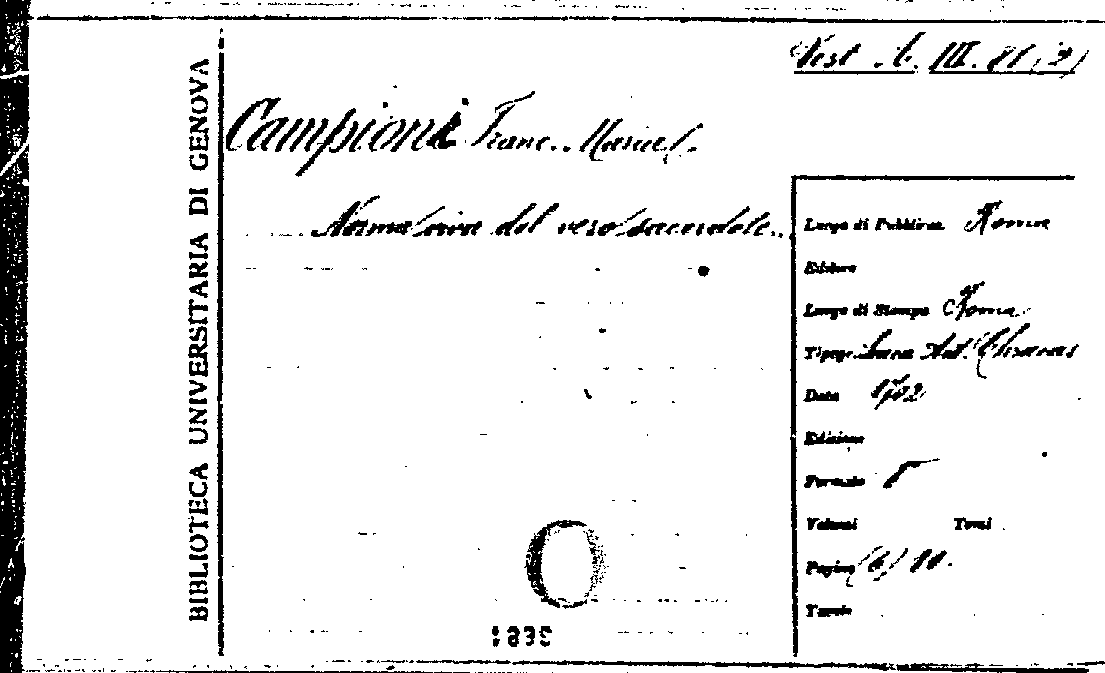 BIBLIOTECA UNIVERSITARIA DI GENOVA
Campioni Franc. Maria
Norma viva del vero sacerdote..
Luogo di Pubblicaz. Roma
Editore
Luogo di Stampa Roma
Tipogr. Luca Ant. Chracas
Data 1702
Edizione
Formato 8
Volumi Tomi
Pagine (6) 80.
Tavole